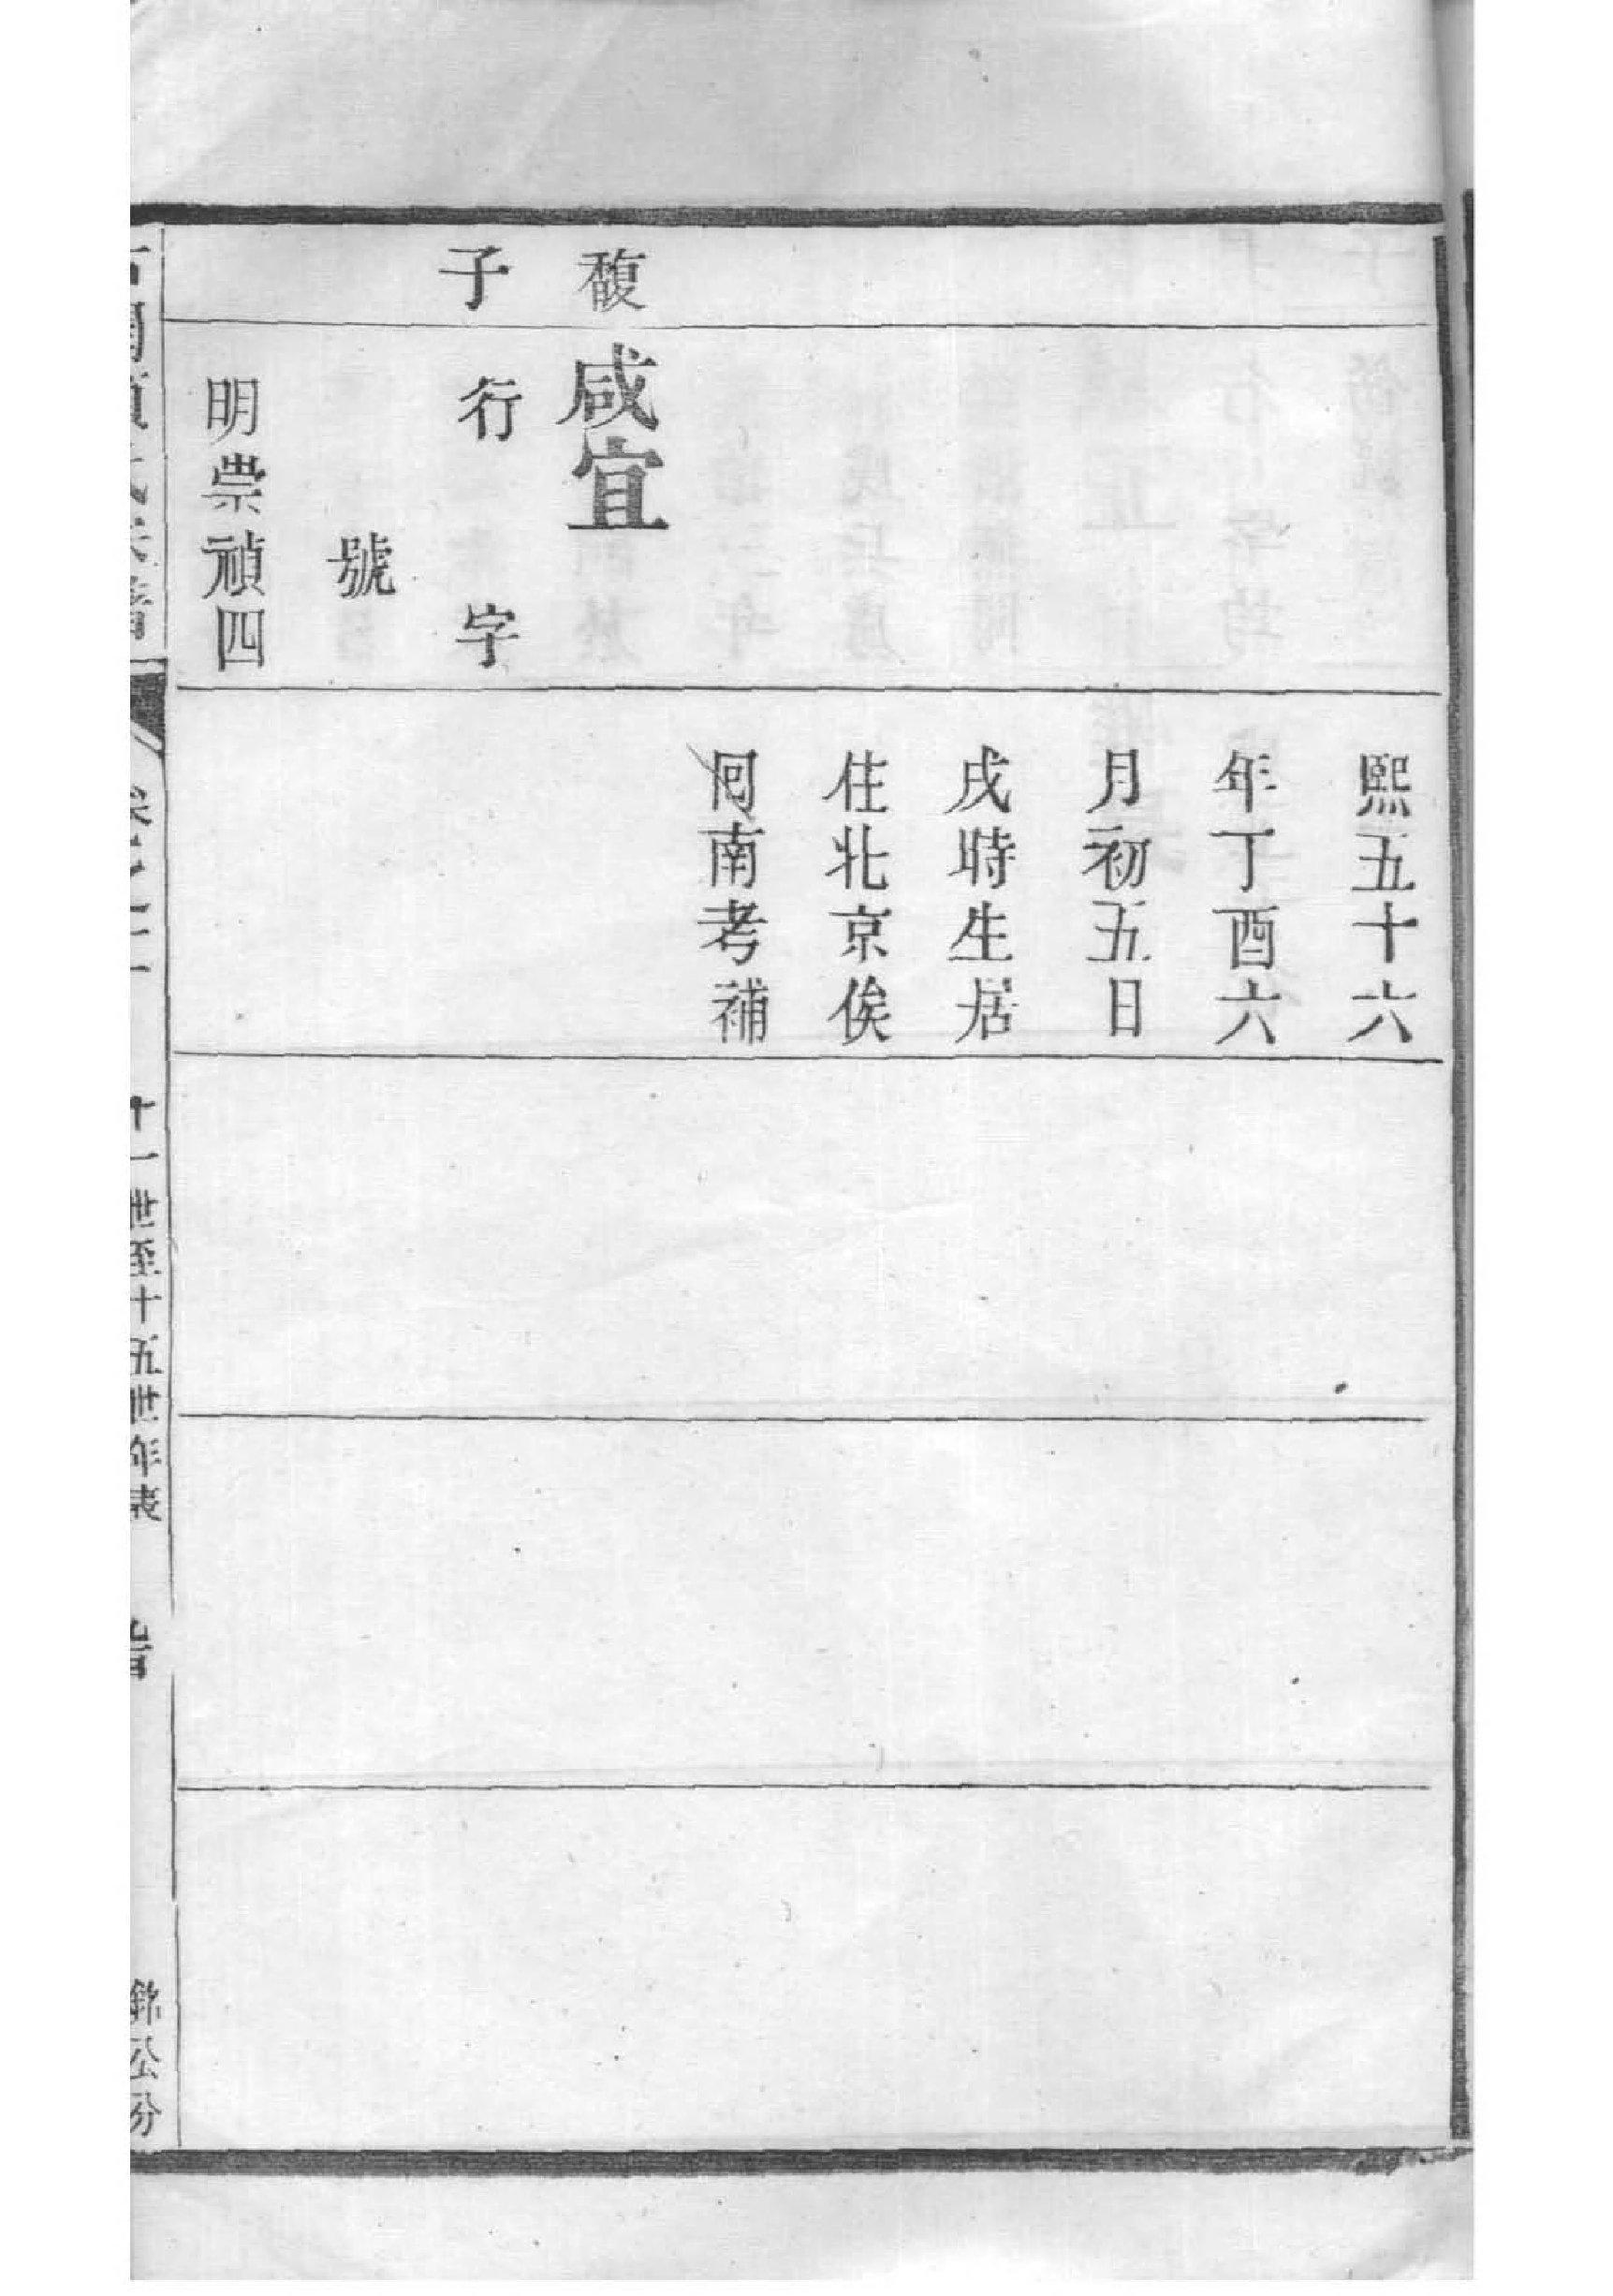 熙五十六
年丁酉六
月初五日
戌時生居
住北京俟
囘南考補
馥
子
咸宜
行　字
號
明崇禎四
十一世至十五世年表
公分